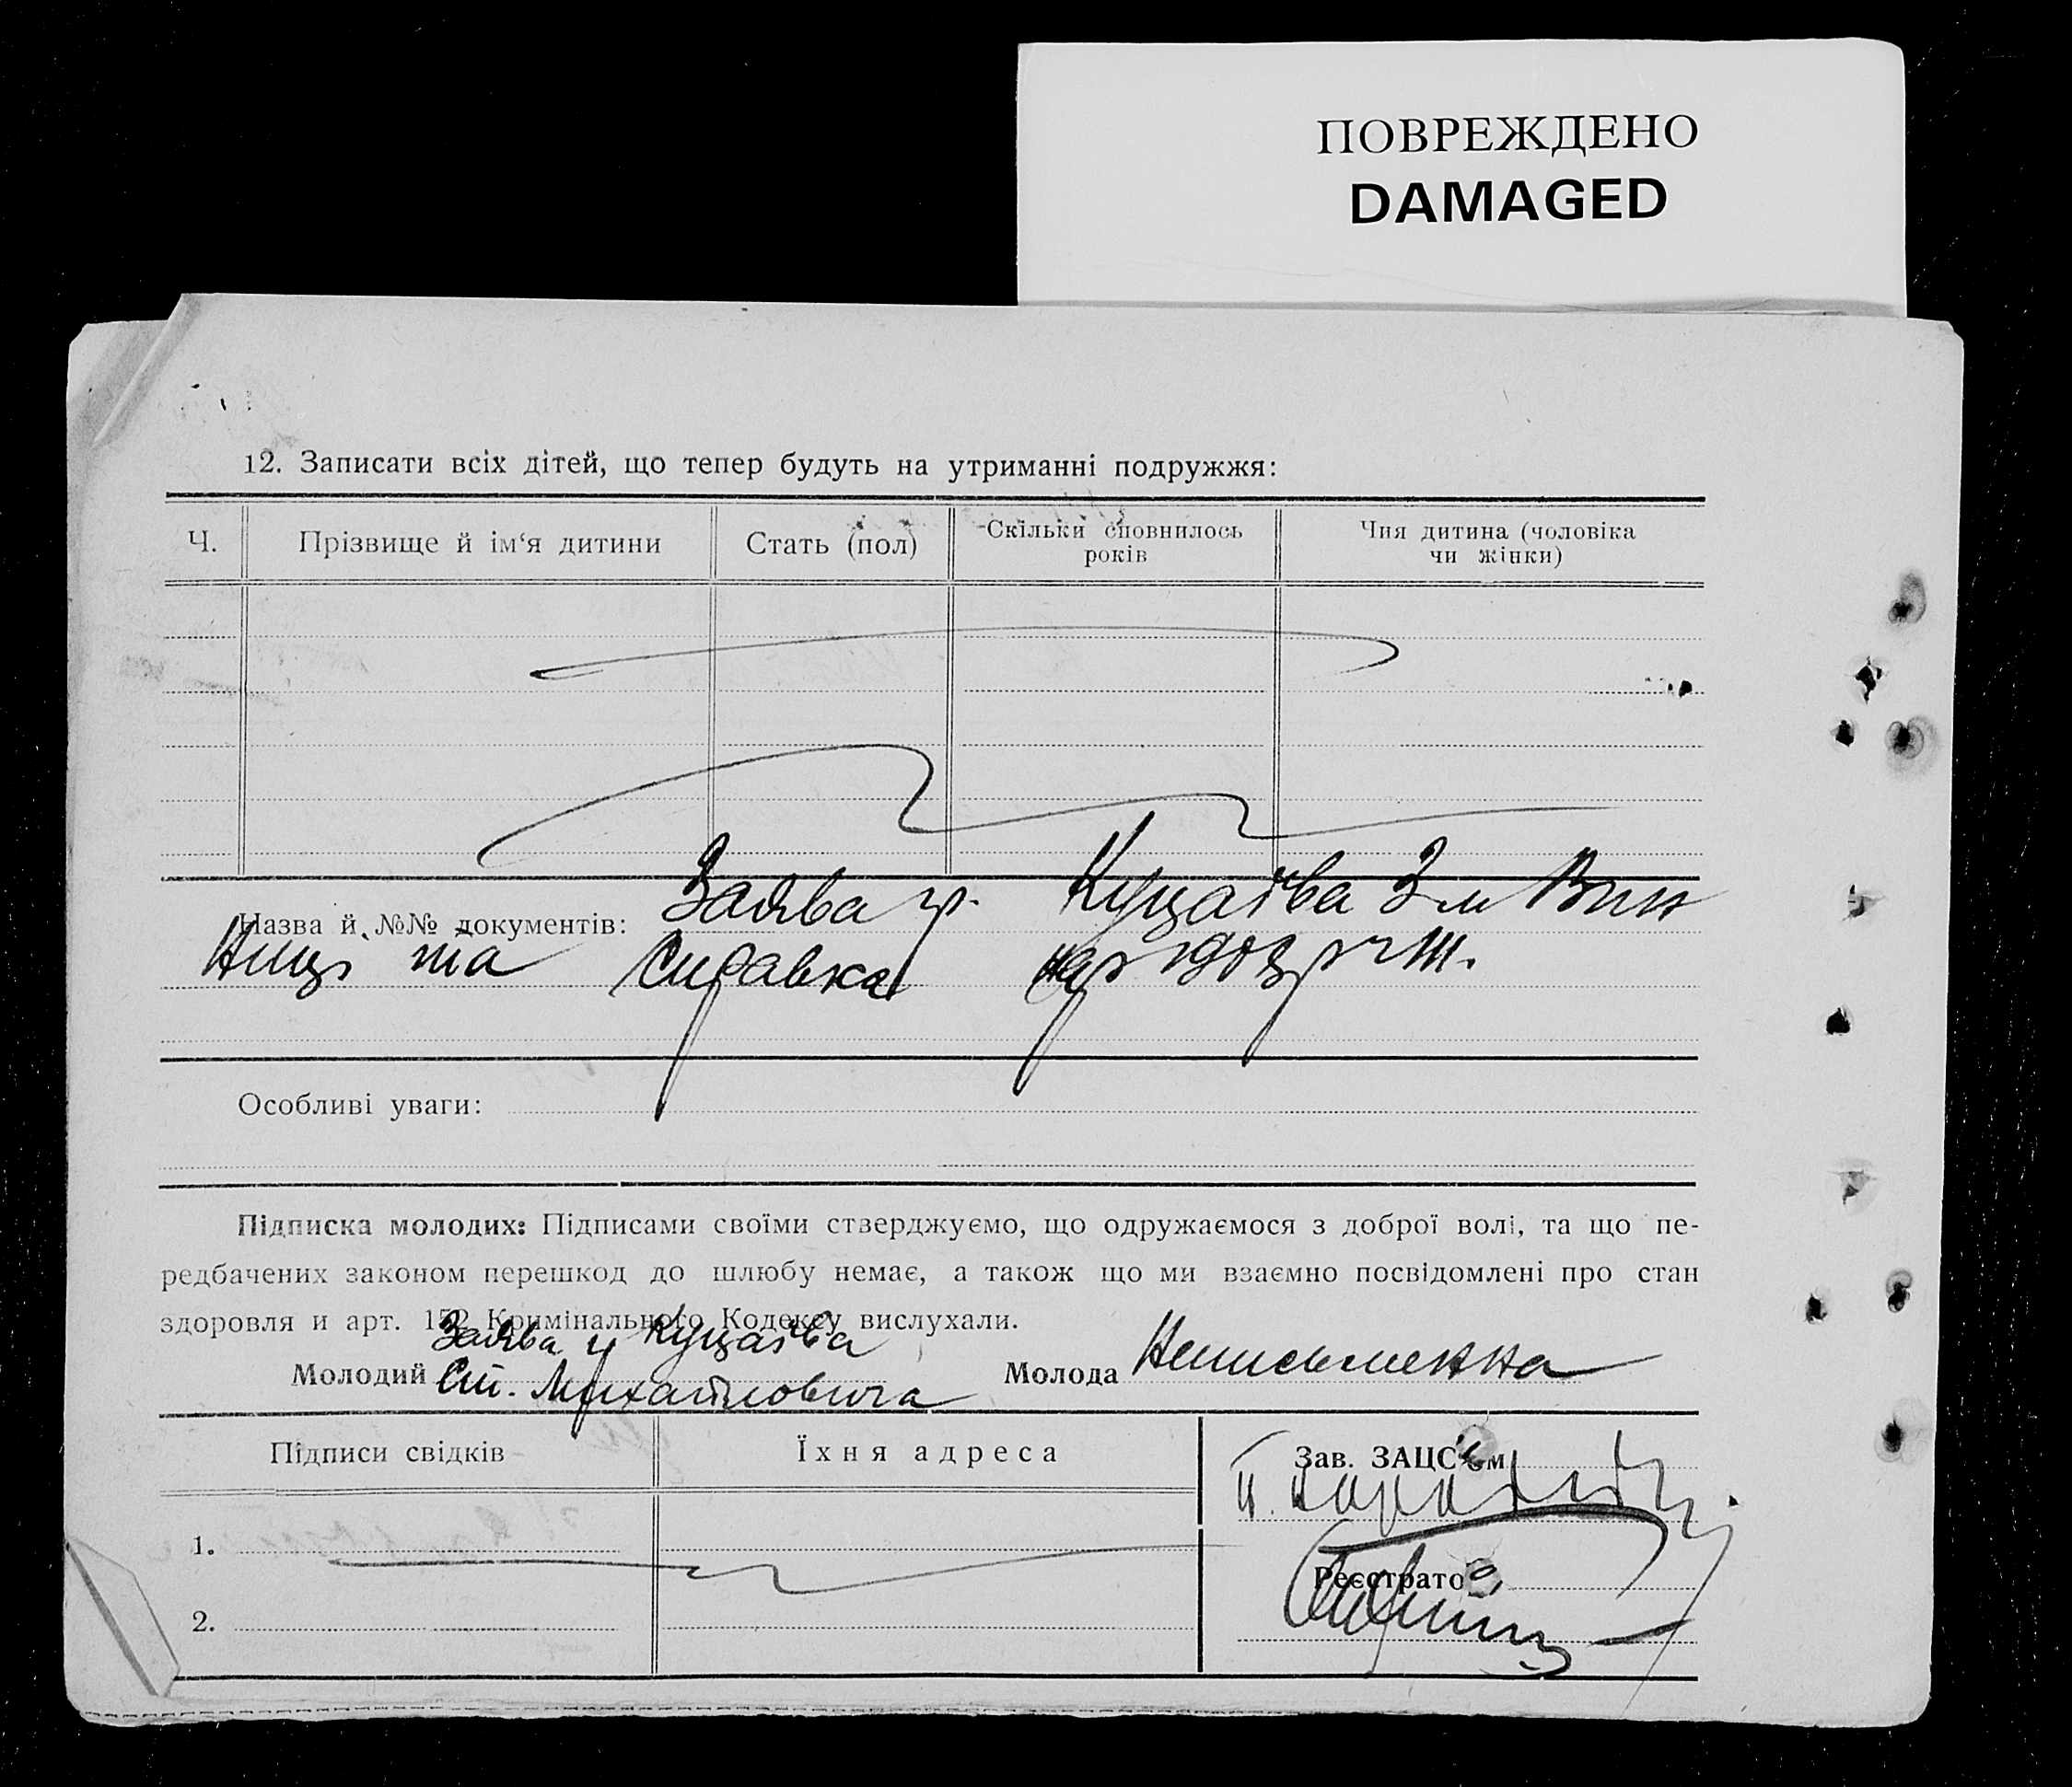 ПОВРЕЖДЕНО
DAMAGED
12. Записати всіх дітей, що тепер будуть на утриманні подружжя:
Ч.
Прізвище й ім‘я дитини
Стать (пол)
Скільки сповнилось років
Чия дитина (чоловіка чи жінки)
Назва й №№ документів: Заява гр.
та Справка
Особливі уваги:
Підписка молодих: Підписами своїми стверджуємо, що одружаємося з доброї волі, та що пе-
редбачених законом перешкод до шлюбу немає, а також що ми взаємно посвідомлені про стан
здоровля и арт. 152 Кримінального Кодексу вислухали.
Заява
Молодий Ст. Михайловича Молода Неписьменна
Підписи свідків
Їхня адреса
Зав. ЗАЦС'ом
1.
Реєстратор
2.